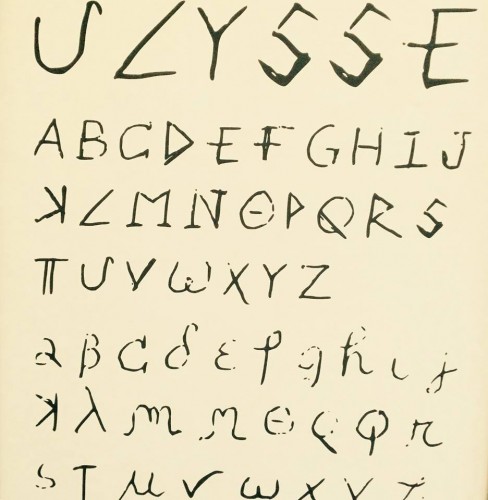 ULYSSE
ABCDEFGHIJ
KLMNOPQRS
TUVWXYZ
abcdefghij
kλmnopqr
stuvwxyz